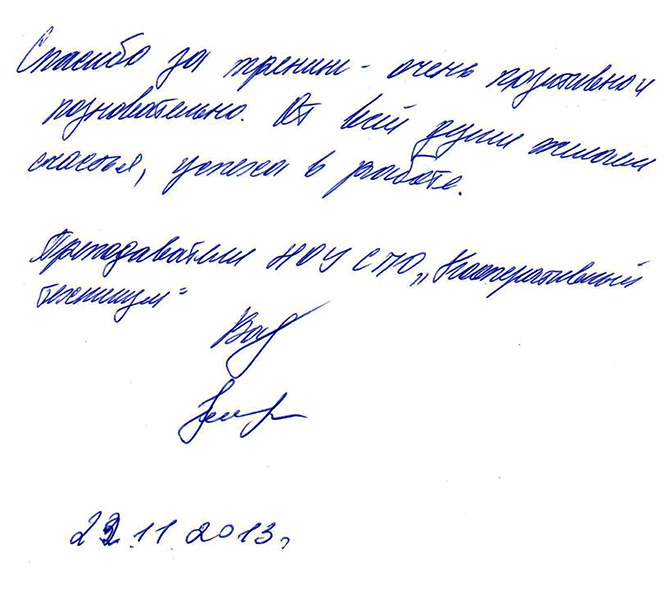 Спасибо за тренинг - очень позитивно и
познавательно. От всей души желаем
счастья, успеха в работе.
Преподаватели НОУ СПО „Кооперативный
техникум"
22.11 2013г